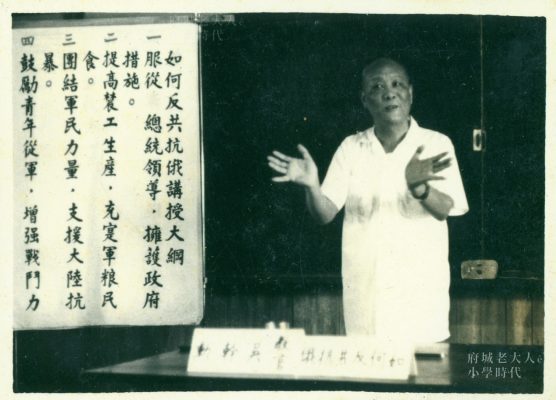 如何反共抗俄講授大綱
一服從 總統領導，擁護政府
措施。
二提高農工生產，充寔軍粮民
食。
三團結軍民力量，支援大陸抗
暴。
四鼓勵青年從軍，增强戰鬥力
如何反共抗俄 教官 吳幹
府城老大人ê
小學時代